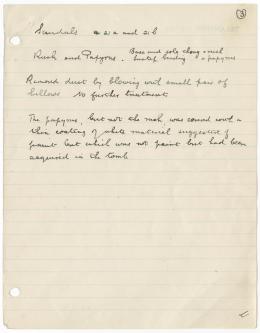 3
Sandals 21a and 21b
Rush and Papyrus. Base and sole thong = rush
binding = papyrus
Removed dust by blowing with small pair of
bellows no further treatment
The papyrus, but not the rush, was covered with a
thin coating of white material suggestive of
paint but which was not paint but had been
acquired in the tomb